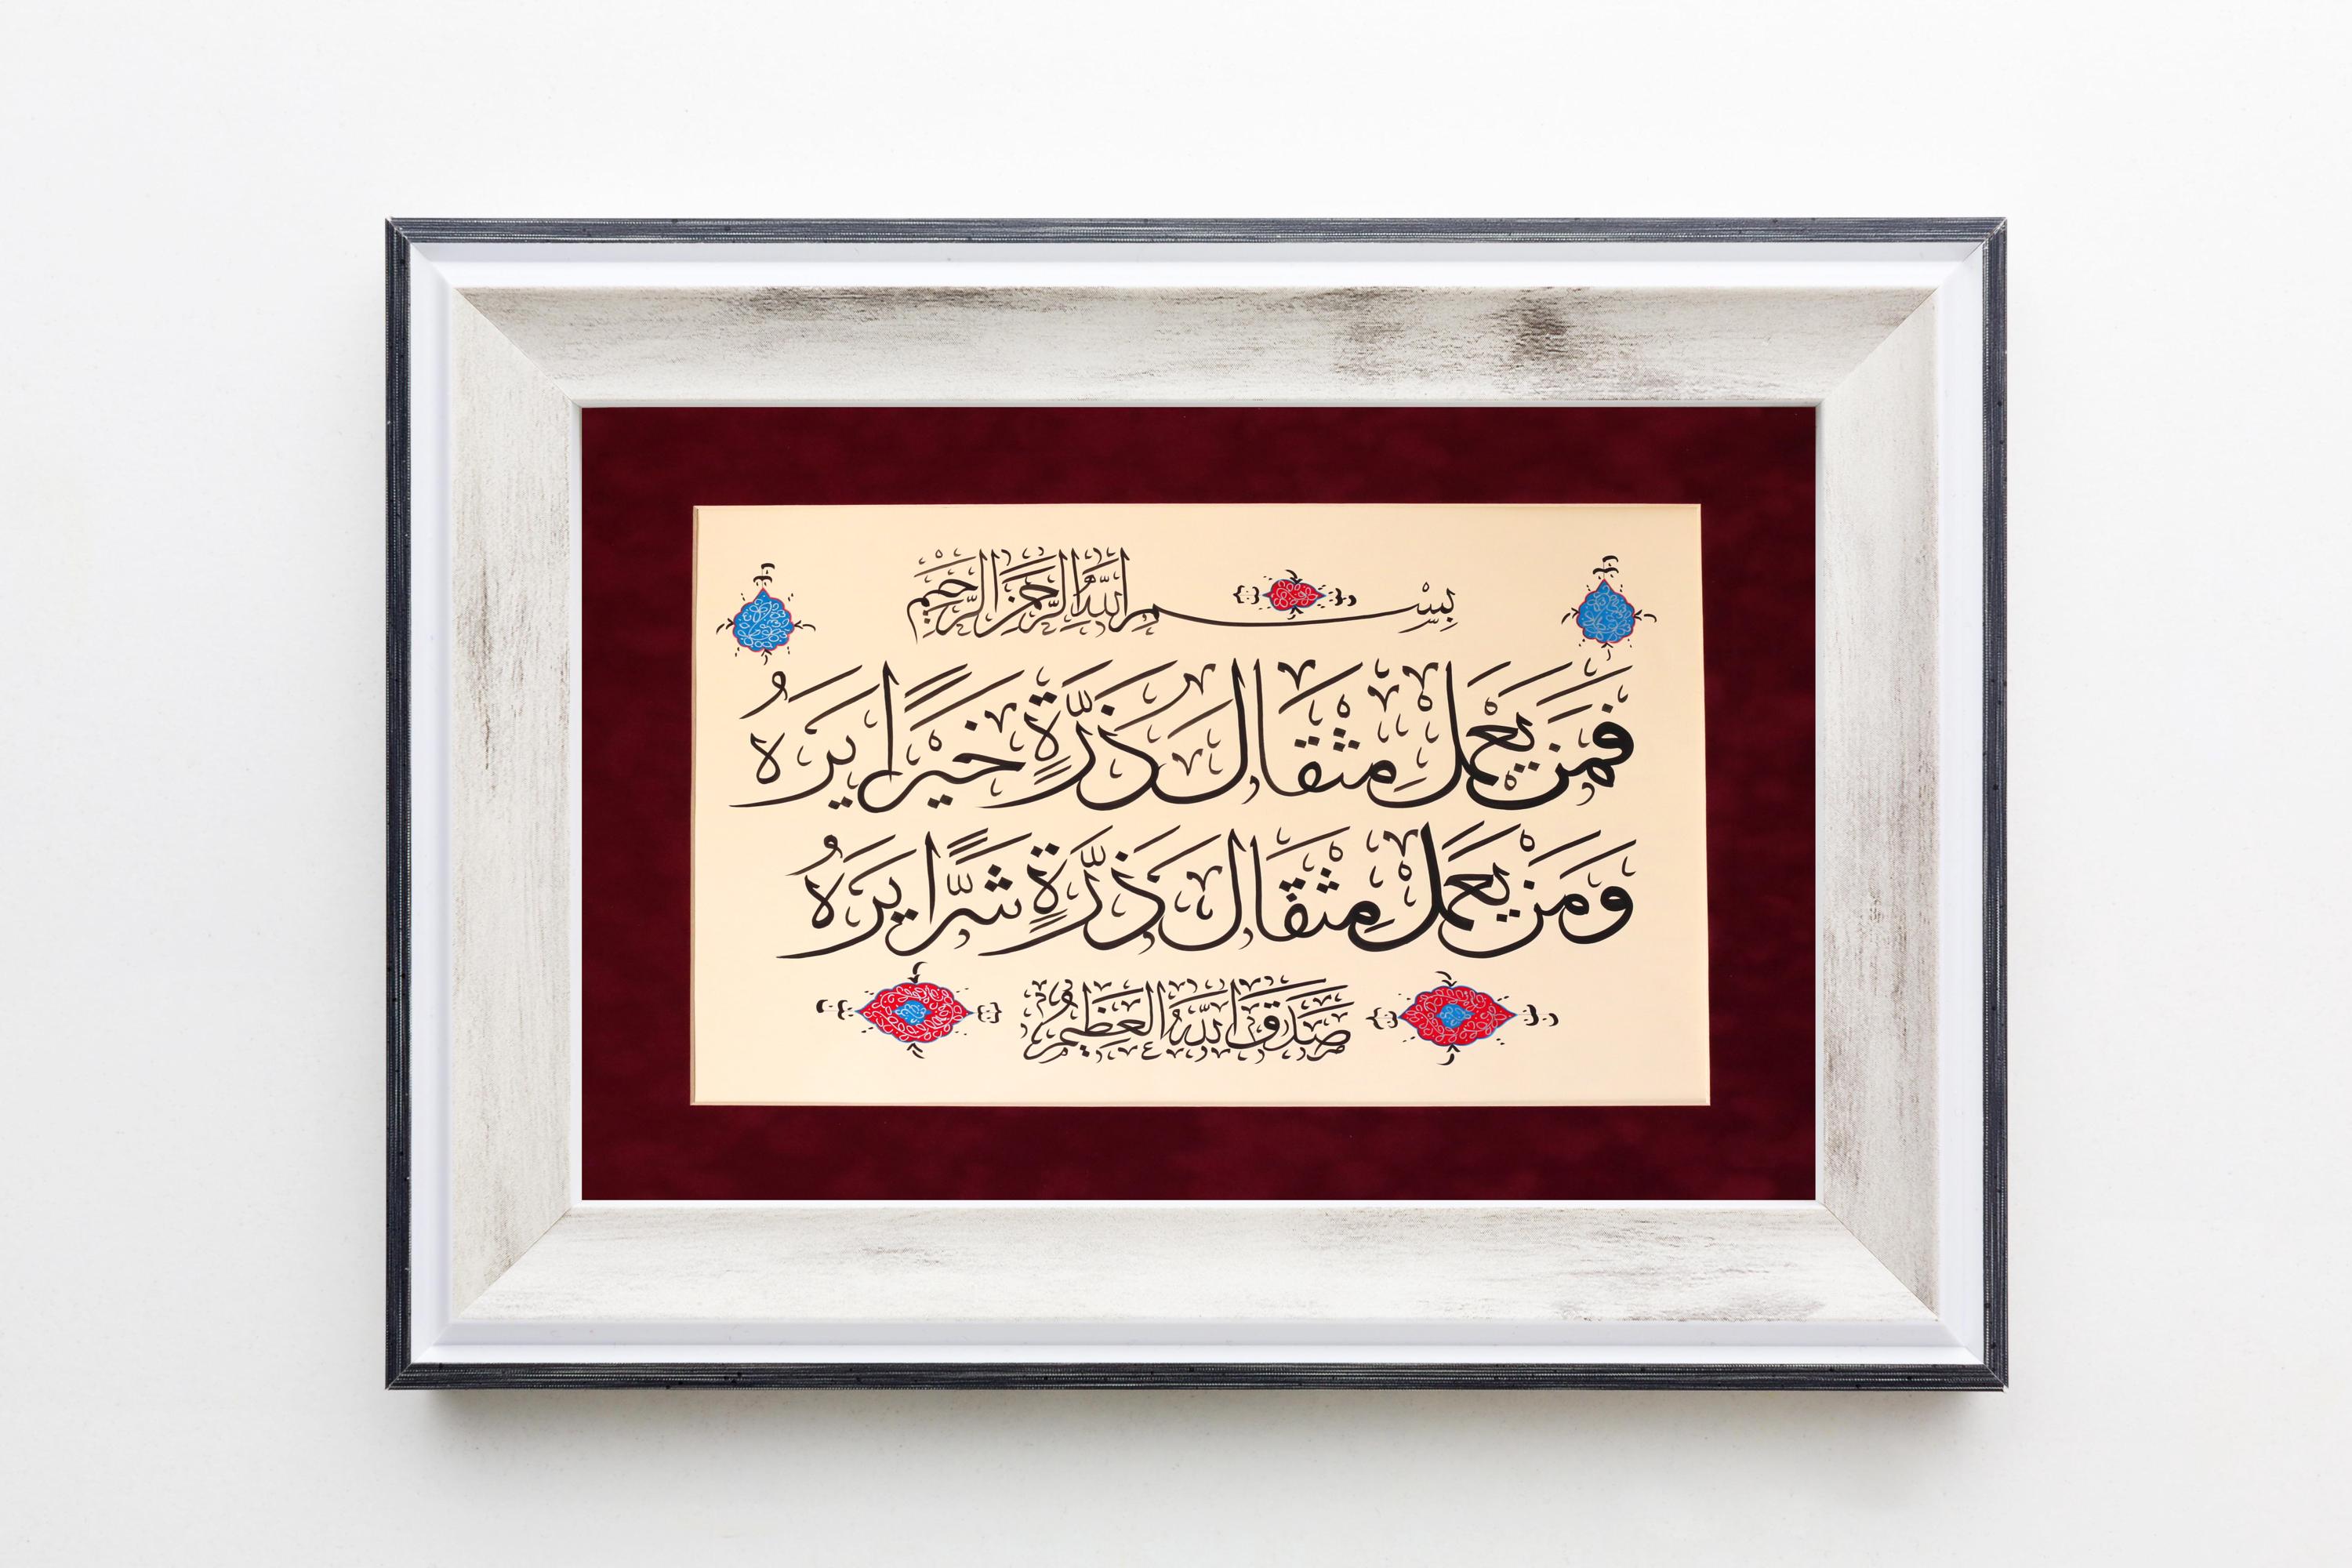 بِسْمِ اللَّهِ الرَّحْمَنِ الرَّحِيمِ
فَمَنْ يَعْمَلْ مِثْقَالَ ذَرَّةٍ خَيْرًا يَرَهُ
وَمَنْ يَعْمَلْ مِثْقَالَ ذَرَّةٍ شَرًّا يَرَهُ
صَدَقَ اللَّهُ الْعَظِيمُ